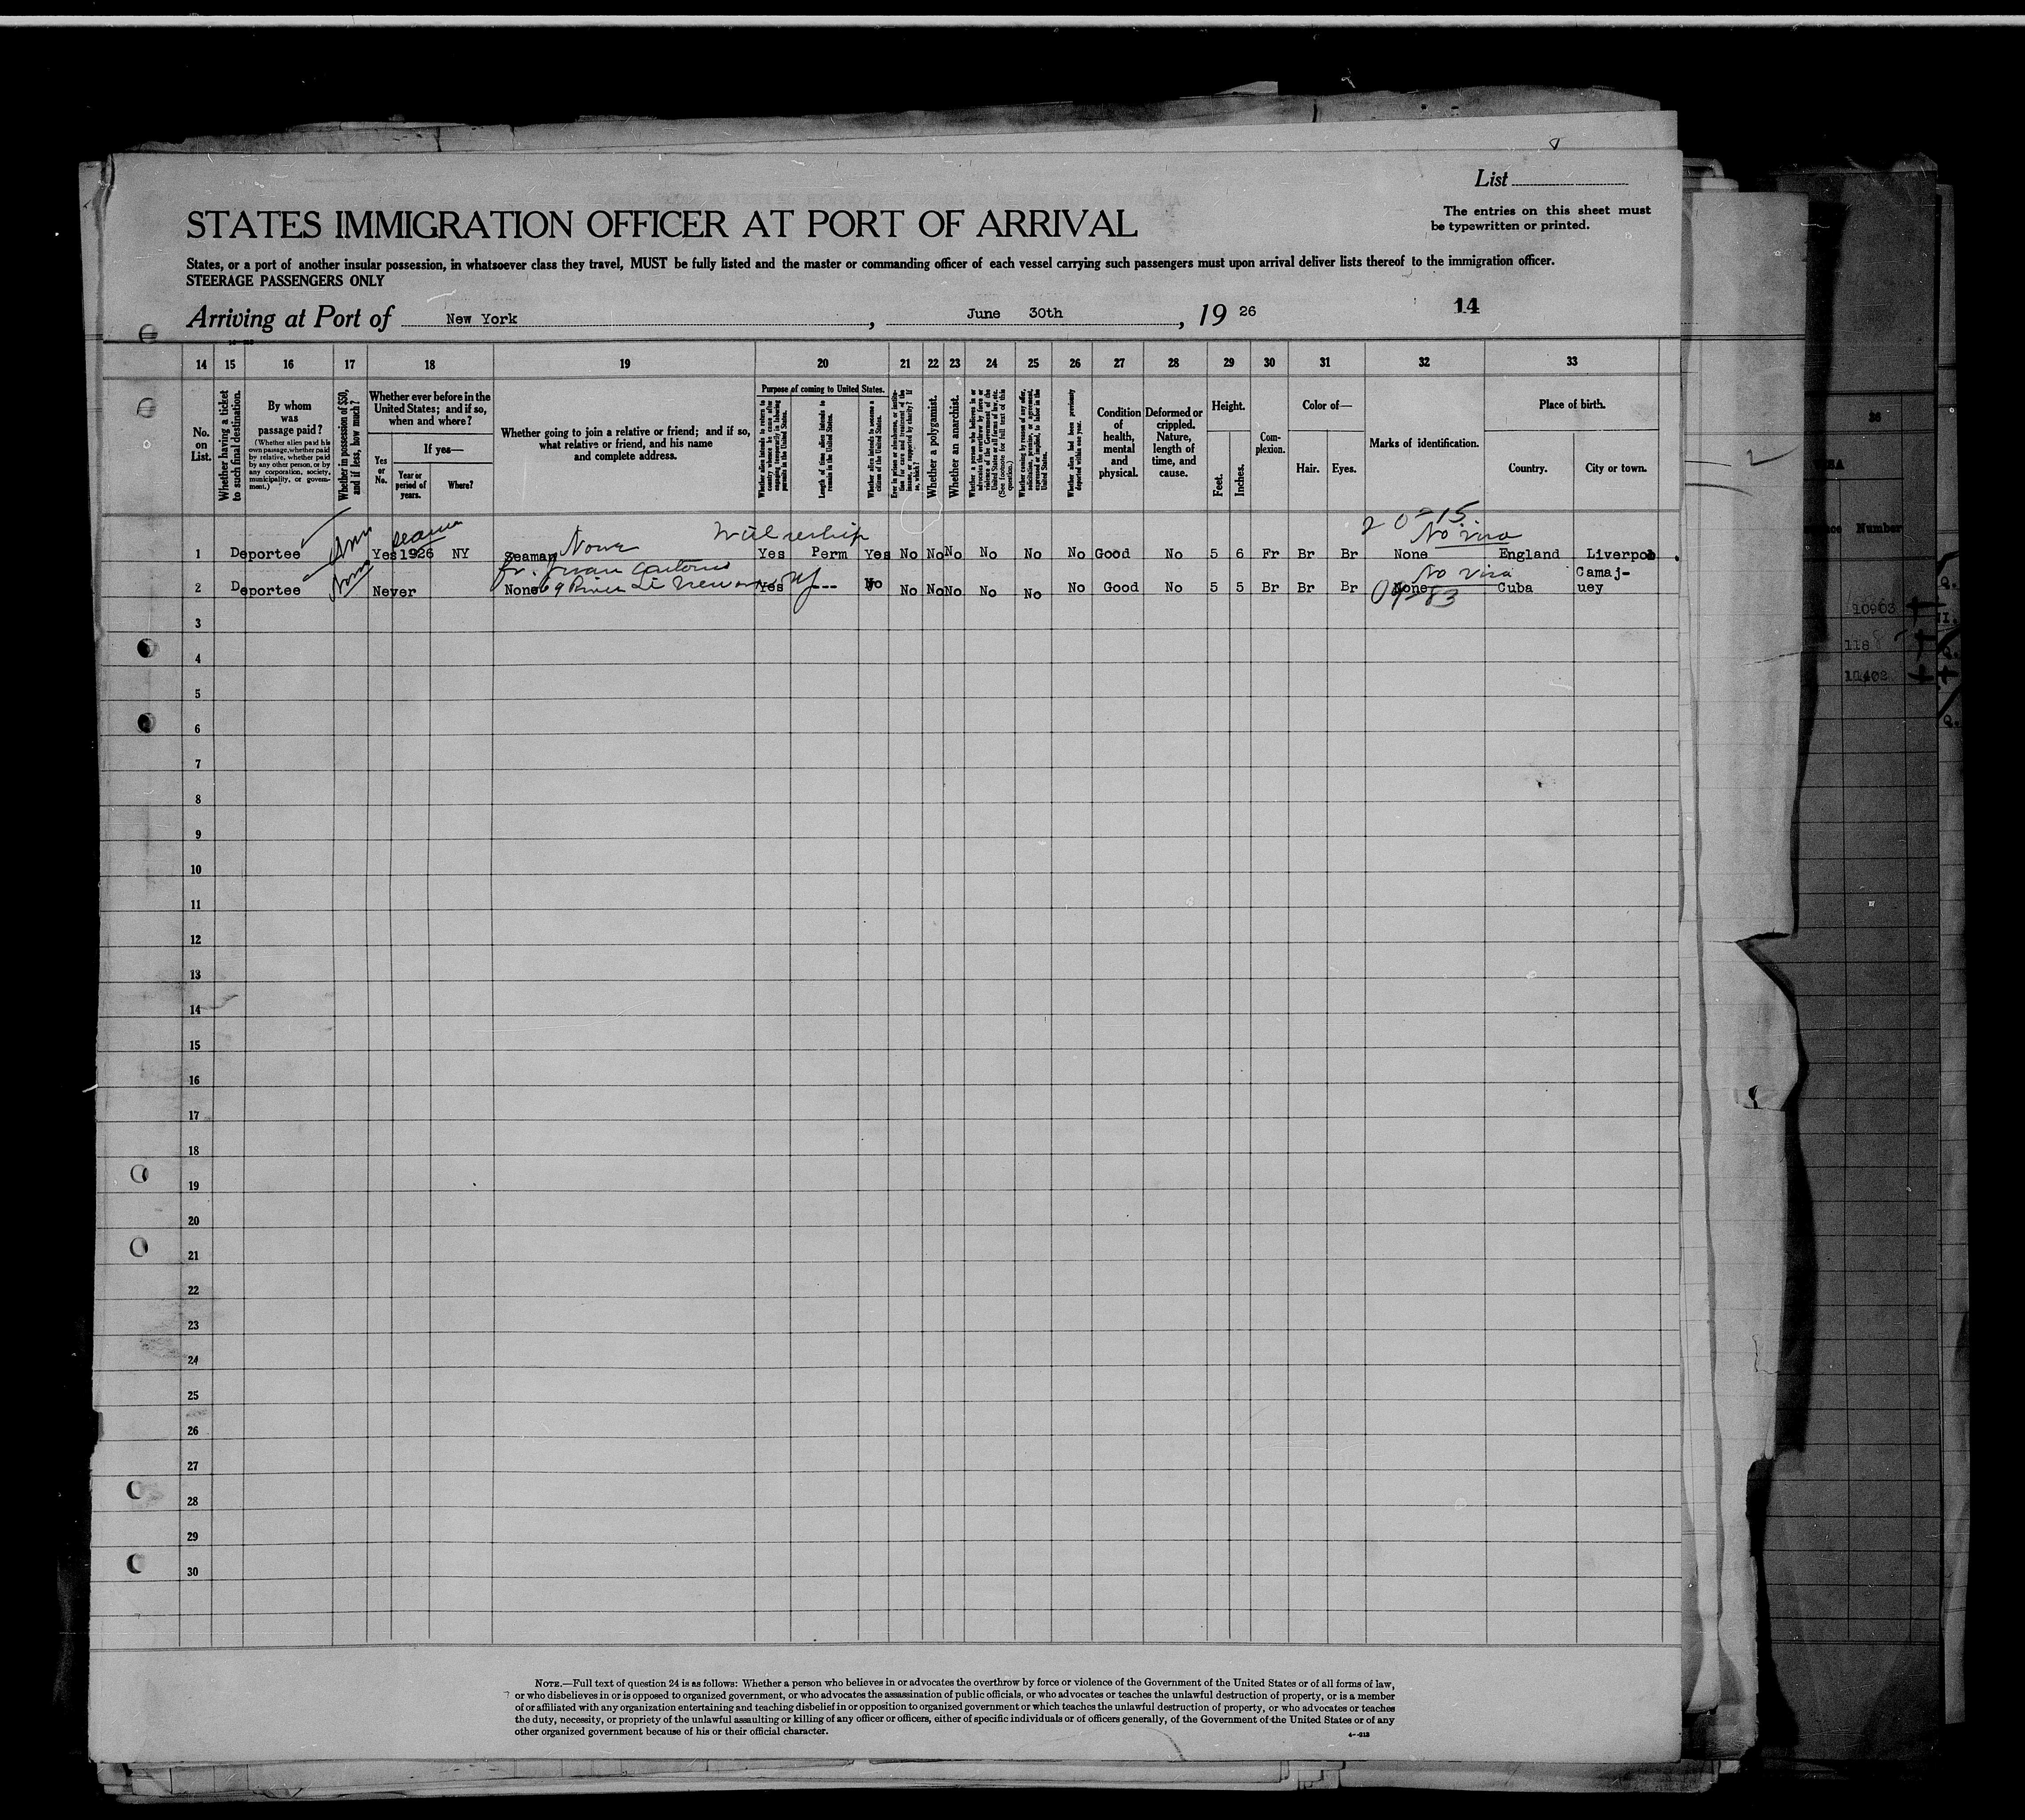 List
The entries on this sheet must
be typewritten or printed.
STATES IMMIGRATION OFFICER AT PORT OF ARRIVAL
States, or a port of another insular possession, in whatsoever class they travel, MUST be fully listed and the master or commanding officer of each vessel carrying such passengers must upon arrival deliver lists thereof to the immigration officer.
STEERAGE PASSENGERS ONLY
Arriving at Port of New York, June 30th, 19 26
14
14 15 16 17 18 19 20 21 22 23 24 25 26 27 28 29 30 31 32 33
No. on List.
Whether having a ticket to such final destination.
By whom was passage paid?
(Whether alien paid his own passage, whether paid by relative, whether paid by any other person, or by any corporation, society, municipality, or government.)
Whether in possession of $50, and if less, how much?
Whether ever before in the United States; and if so, when and where?
Yes or No.
If yes—
Year or period of years.
Where?
Whether going to join a relative or friend; and if so, what relative or friend, and his name and complete address.
Purpose of coming to United States.
Whether alien intends to return to country whence he came after engaging temporarily in laboring pursuits in the United States.
Length of time alien intends to remain in the United States.
Whether alien intends to become a citizen of the United States.
Ever in prison or almshouse, or institution for care and treatment of the insane, or supported by charity? If so, which?
Whether a polygamist.
Whether an anarchist.
Whether a person who believes in or advocates the overthrow by force or violence of the Government of the United States or all forms of law, etc. (See footnote for full text of this question.)
Whether coming by reason of any offer, solicitation, promise, or agreement, expressed or implied, to labor in the United States.
Whether alien had been previously deported within one year.
Condition of health, mental and physical.
Deformed or crippled. Nature, length of time, and cause.
Height.
Feet.
Inches.
Complexion.
Color of—
Hair.
Eyes.
Marks of identification.
Place of birth.
Country.
City or town.
20-715
No visa
1 Deportee Yes 1926 NY Seaman None Yes Perm Yes No No No No No No Good No 5 6 Fr Br Br None England Liverpool
No visa
2 Deportee None Never None Yes --- No No No No No No No Good No 5 5 Br Br Br None Cuba Camaj-
uey
3
4
5
6
7
8
9
10
11
12
13
14
15
16
17
18
19
20
21
22
23
24
25
26
27
28
29
30
Number
10903
118
11402
NOTE.—Full text of question 24 is as follows: Whether a person who believes in or advocates the overthrow by force or violence of the Government of the United States or of all forms of law,
or who disbelieves in or is opposed to organized government, or who advocates the assassination of public officials, or who advocates or teaches the unlawful destruction of property, or is a member
of or affiliated with any organization entertaining and teaching disbelief in or opposition to organized government or which teaches the unlawful destruction of property, or who advocates or teaches
the duty, necessity, or propriety of the unlawful assaulting or killing of any officer or officers, either of specific individuals or of officers generally, of the Government of the United States or of any
other organized government because of his or their official character.